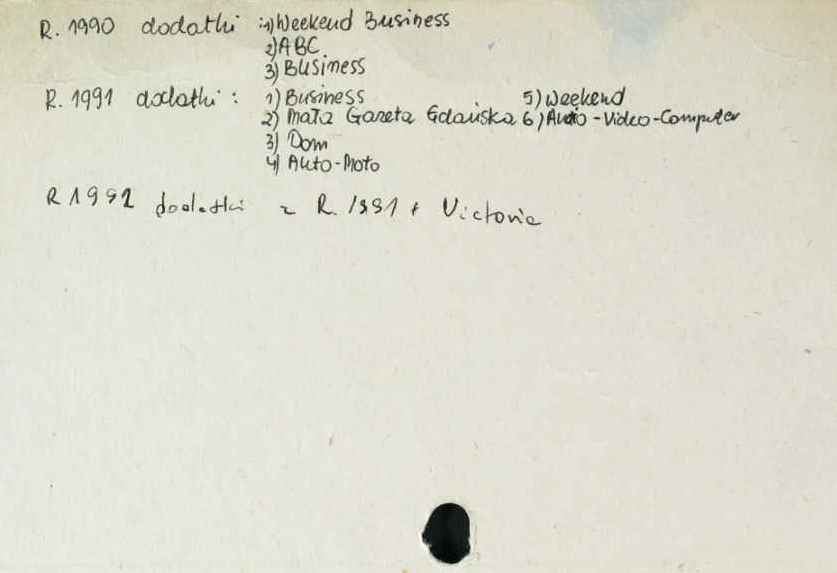 R. 1990 dodatki : 1) Weekend Business
2) ABC
3) Business
R. 1991 dodatki : 1) Business 5) Weekend
2) Mała Gazeta Gdańska 6) Auto-Video-Computer
3) Dom
4) Auto-Moto
R 1992 dodatki z R. 1991 + Victoria